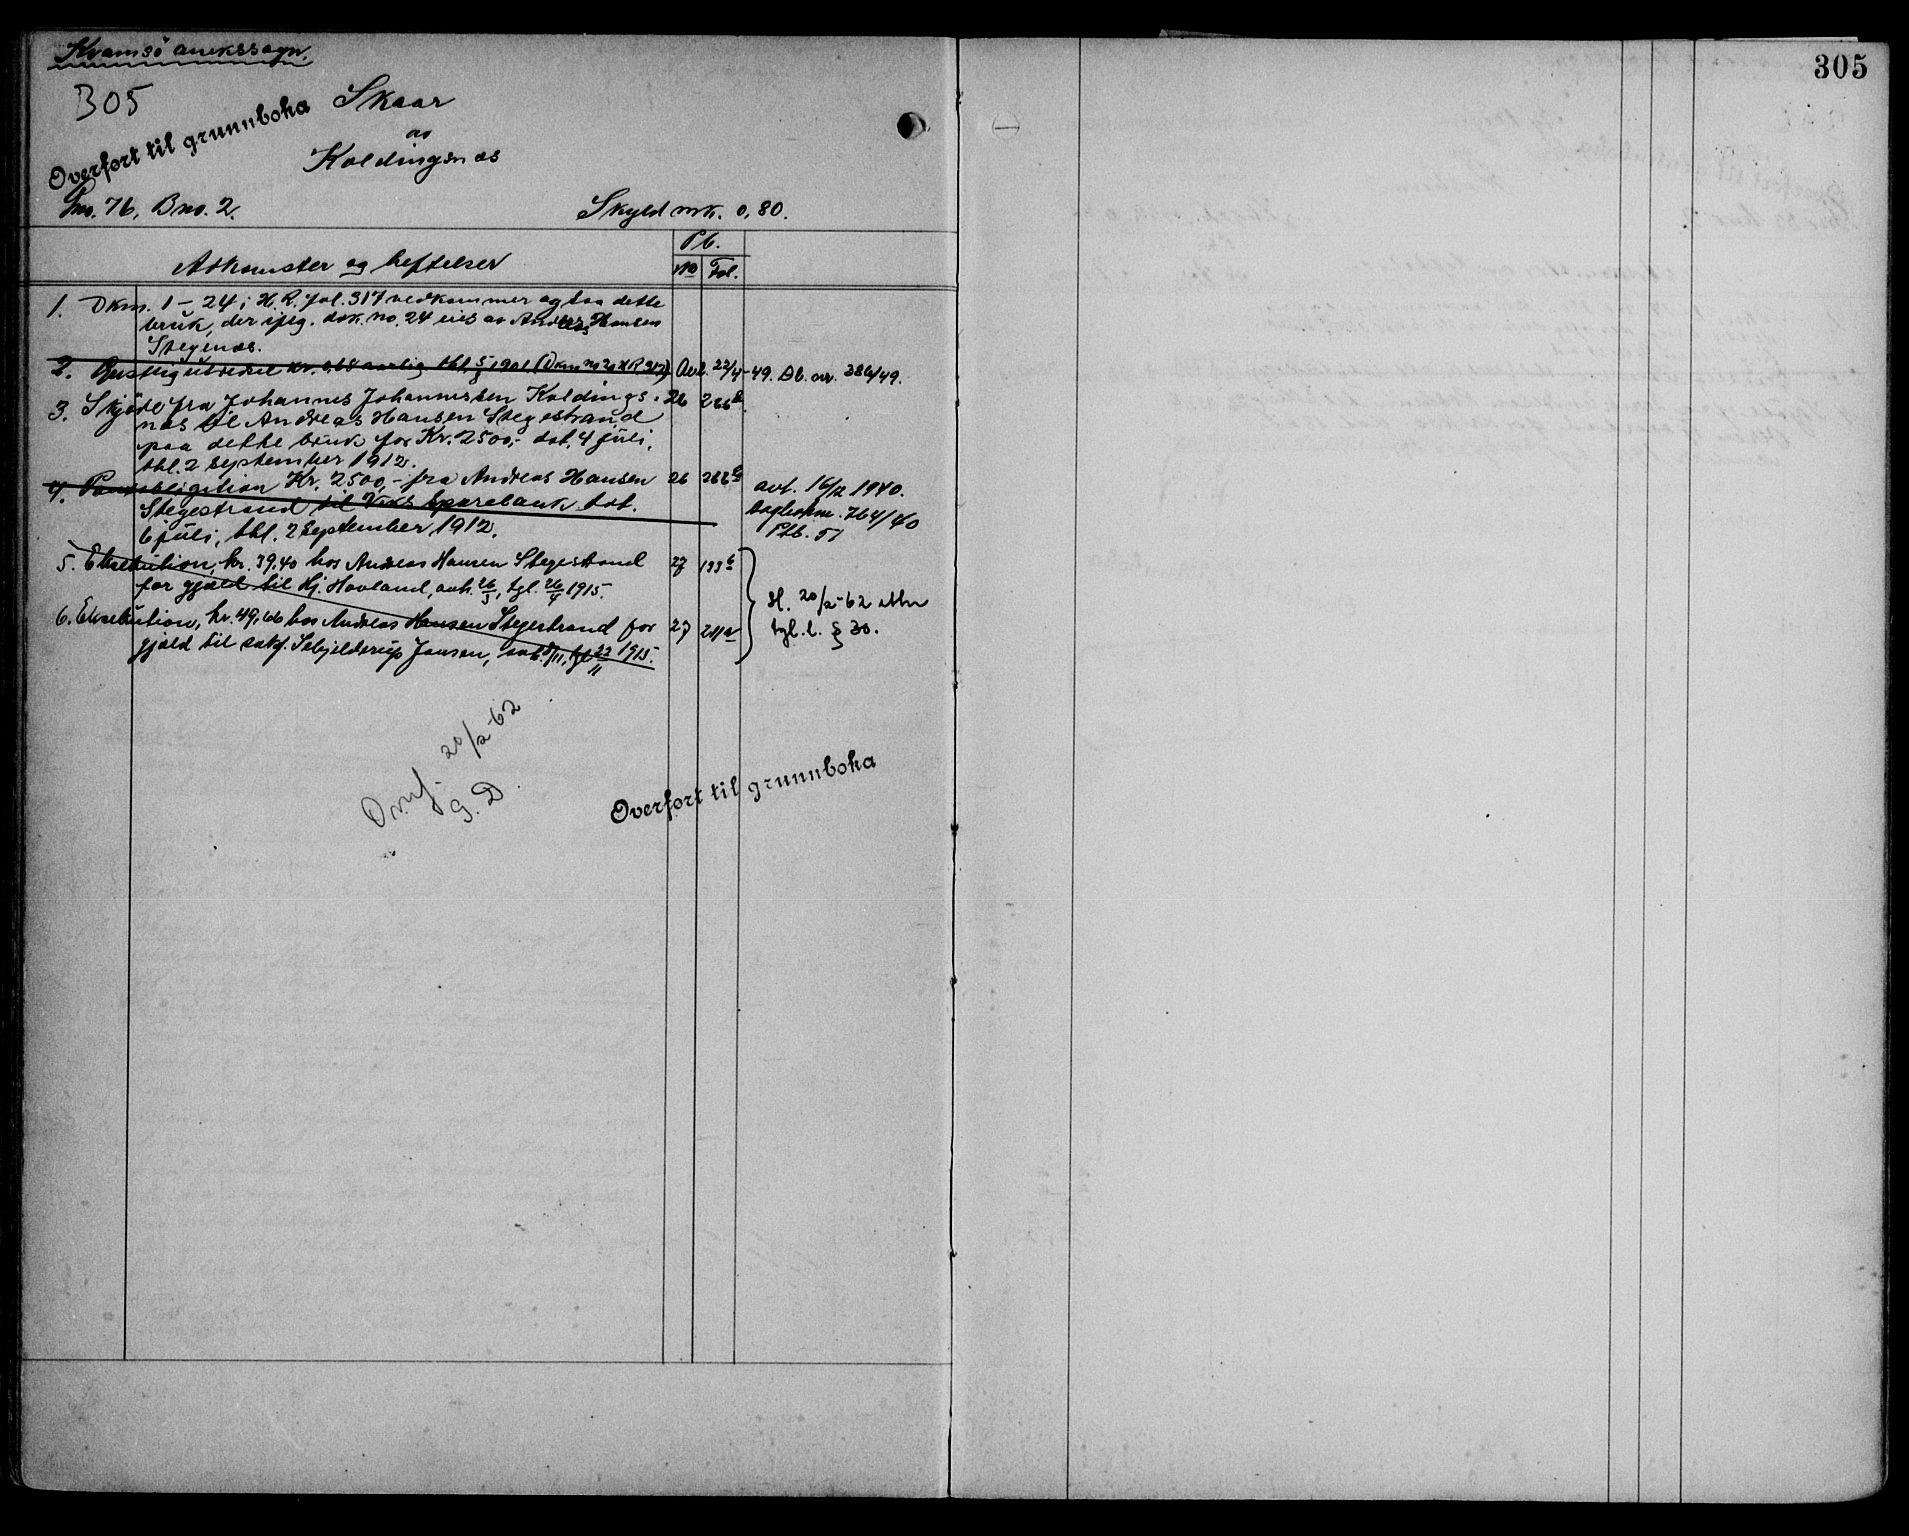 Kvamsö anekssogn.
305
305
Overført til grunnboka
Skaar
av
Koldingsnæs
Gno. 76, Bno. 2.
Skyld mrk. 0,80.
Adkomster og heftelser
Pb.
No Fol.
1. Dkm. 1 - 24 i H.R. fol. 317 vedkommer ogsaa dette
bruk, der ifölg. dok. no. 24 eies av Andreas Hansen
Stegenæs.
2. utredsel kr. aarlig tbl. 1901 (Dkm no 20 H R 317) Avl. 22/4-49. Db. nr. 386/49.
3. Skjöte fra Johannes Johannessen Koldings- 26 286b
næs til Andreas Hansen Stegestrand
paa dette bruk for Kr. 2500,- dat. 4 juli,
tbl. 2 september 1912.
4. Pantobligation Kr. 2500,- fra Andreas Hansen 26 288b
Stegestrand til Viks Sparebank dat.
6 juli, tbl. 2 September 1912.
avl. 16/12 1940.
dagboknr. 764/40
Ptb. 51
5. Eksekution, kr. 39.40 hos Andreas Hansen Stegestrand 27 133b
for gjæld til Hj. Hovland, avh. 26/3, tgl. 26/4 1915.
6. Eksekution, kr. 49,66 hos Andreas Hansen Stegestrand for 27 211a
gjæld til sakf. Schjelderup Jansen, avh. 8/11, tgl 22/11 1915.
Sl. 20/2-62 etter
tgl. l. § 30.
Overf. 20/2-62
G. D.
Overført til grunnboka